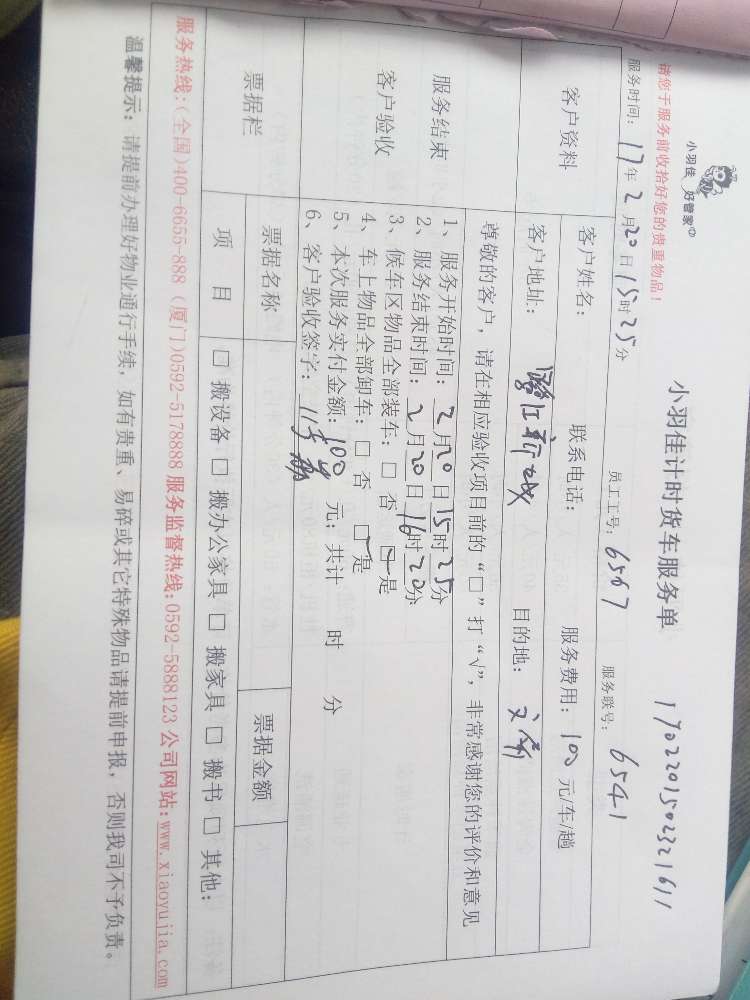 小羽佳 好管家
小羽佳计时货车服务单
请您于服务前收拾好您的贵重物品！
服务时间：17年2月20日15时25分 员工工号：6567 服务联号：6541
客户资料
客户姓名： 联系电话： 服务费用：100元/车/趟
客户地址： 目的地：
尊敬的客户，请在相应验收项目前的“□”打“√”，非常感谢您的评价和意见
服务结束
客户验收
1、服务开始时间：2月20日15时25分
2、服务结束时间：2月20日16时20分
3、候车区物品全部装车：□ 否 □是
4、车上物品全部卸车：□ 否 □是
5、本次服务实付金额：100元；共计 时 分
6、客户验收签字：
票据栏
票据名称 票据金额
项 目 □ 搬设备 □ 搬办公家具 □ 搬家具 □ 搬书 □ 其他：
服务热线：(全国)400-6655-888 (厦门)0592-5178888 服务监督热线:0592-5888123 公司网站:www.xiaoyujia.com
温馨提示：请提前办理好物业通行手续，如有贵重、易碎或其它特殊物品请提前申报，否则我司不予负责。